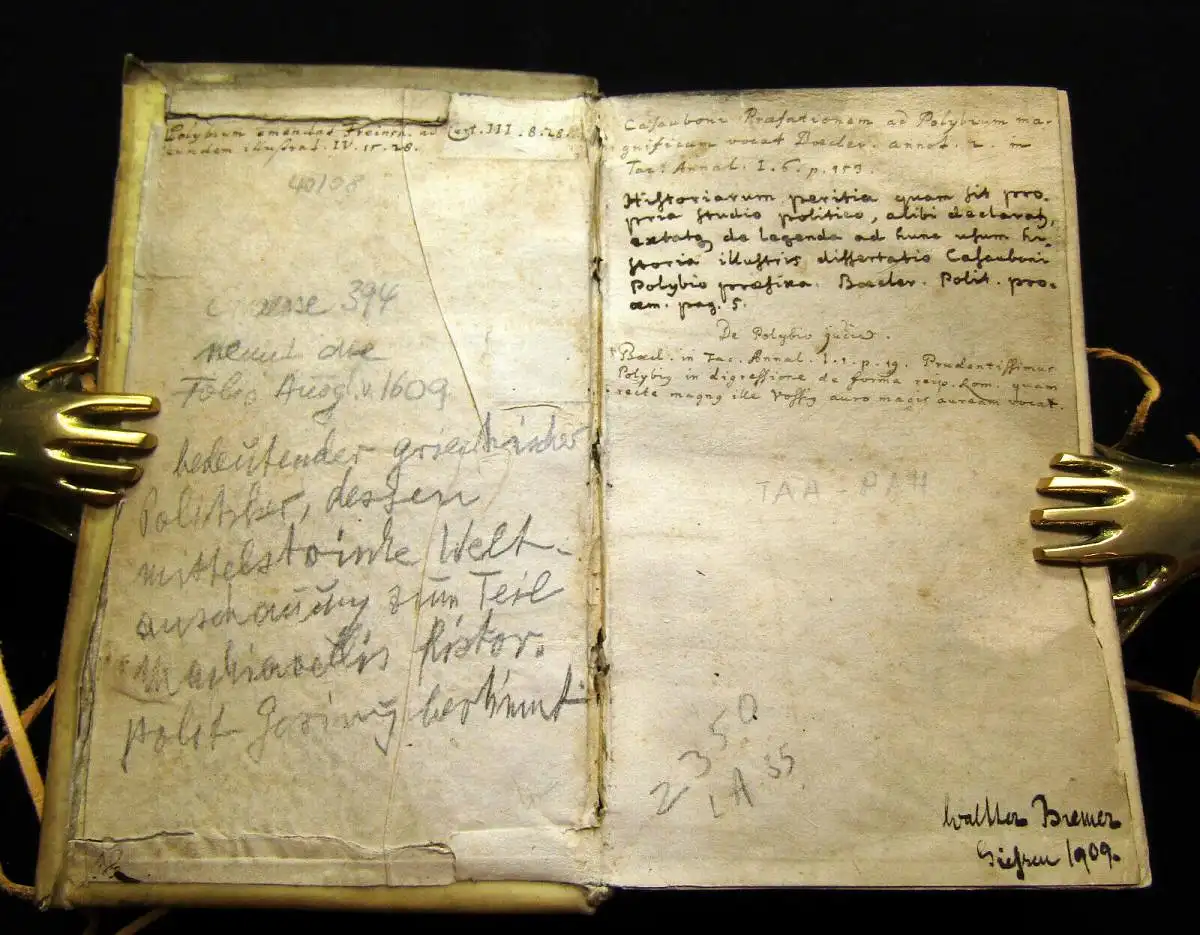 Polybium emendat Freinsh. ad Curt. III. 8. 28.
eundem illustrat. IV. 15. 28.
40/08
394
nennt die
Folio Ausg. v. 1609.
bedeutender griechischer
Politiker, dessen
mittelstoische Welt-
anschauung zum Teil
Machiavellis histor.
polit Gesinnung bestimmt
Casauboni Præfationem ad Polybium ma-
gnificam vocat Boecler. annot. 2. in
Tac. Annal. I. 6. p. 153.
Historiarum peritia quam sit pro-
pria studio politico, alibi declarat,
extatq de legenda ad hunc usum hi-
storia illustris dissertatio Casauboni
Polybio præfixa. Boecler. Polit. pro-
œm. pag. 5.
De Polybio judic.
Boecl. in Tac. Annal. I. 1. p. 19. Prudentissimus
Polybius in digressione de forma reip. Rom. quam
recte magnus ille Vossius auro magis auream vocat.
TAA PAH
2350
LA 35
Walther Bremer
Giessen 1909.